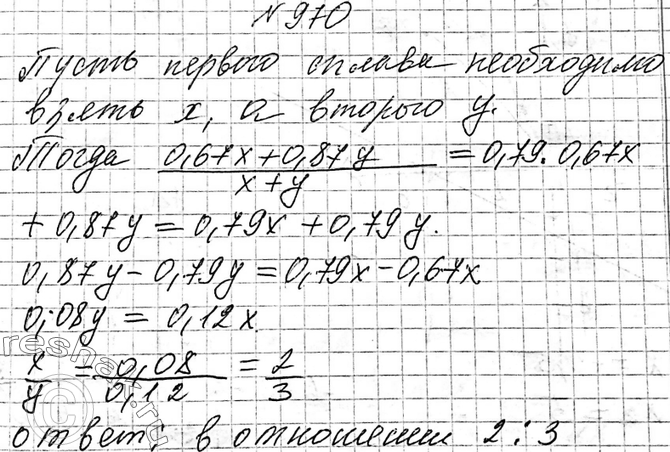 №970
Пусть первого сплава необходимо
взять x, а второго y.
Тогда (0,67x+0,87y)/(x+y) = 0,79. 0,67x
+ 0,87y = 0,79x + 0,79y.
0,87y - 0,79y = 0,79x - 0,67x
0,08y = 0,12x
x/y = 0,08/0,12 = 2/3
ответ: в отношении 2:3